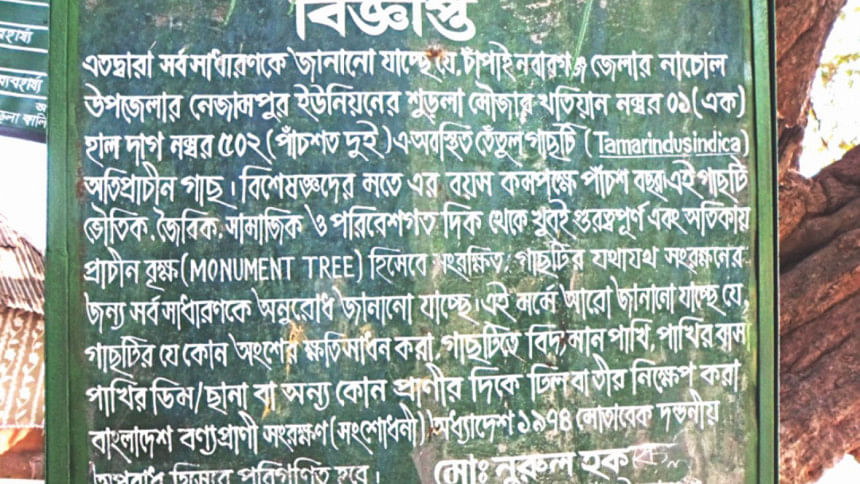 বিজ্ঞপ্তি
এতদ্বারা সর্ব সাধারণকে জানানো যাচ্ছে যে, চাঁপাইনবাবগঞ্জ জেলার নাচোল
উপজেলার নেজামপুর ইউনিয়নের শুড়লা মৌজার খতিয়ান নম্বর ০১ (এক)
হাল দাগ নম্বর ৫০২ (পাঁচশত দুই) এ অবস্থিত তেঁতুল গাছটি (Tamarindusindica)
অতিপ্রাচীন গাছ। বিশেষজ্ঞদের মতে এর বয়স কমপক্ষে পাঁচশ বছর। এই গাছটি
ভৌতিক, জৈবিক, সামাজিক ও পরিবেশগত দিক থেকে খুবই গুরত্বপূর্ণ এবং অতিকায়
প্রাচীন বৃক্ষ (MONUMENT TREE) হিসেবে সংরক্ষিত, গাছটির যথাযথ সংরক্ষনের
জন্য সর্ব সাধারণকে অনুরোধ জানানো যাচ্ছে। এই মর্মে আরো জানানো যাচ্ছে যে,
গাছটির যে কোন অংশের ক্ষতিসাধন করা, গাছটিতে বিদ্যমান পাখি, পাখির বাসা
পাখির ডিম/ছানা বা অন্য কোন প্রাণীর দিকে ঢিল বা তীর নিক্ষেপ করা
বাংলাদেশ বণ্যপ্রাণী সংরক্ষণ (সংশোধনী) অধ্যাদেশ ১৯৭৪ মোতাবেক দন্ডনীয়
অপরাধ হিসেবে পরিগণিত হবে।
মোঃ নুরুল হক